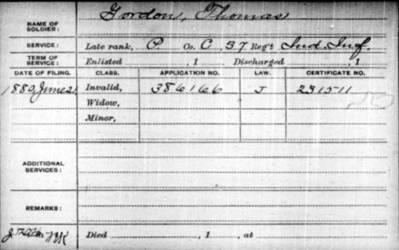 NAME OF SOLDIER: Gordon, Thomas
SERVICE: Late rank, P. Co. C, 37 Reg't Ind. Inf.
TERM OF SERVICE: Enlisted , 1 Discharged , 1
DATE OF FILING. CLASS. APPLICATION NO. LAW. CERTIFICATE NO.
1880, June 21 Invalid, 386166 J 231511
Widow,
Minor,
ADDITIONAL SERVICES:
REMARKS:
Died , 1 , at